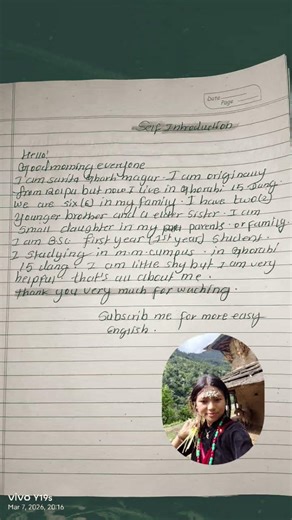 Date
Page
Self Introduction
Hello!
Good morning everyone
I am sunita Gharti magar. I am originally
from Rolpa but now I live in Ghorahi 15 Dang.
We are six(6) in my family. I have two(2)
Younger brother and a elder sister. I am
Small daughter in my parents or family.
I am BSC first year (1st year) student.
I Studying in m.m campus. in Ghorahi
15 dang. I am little shy but I am very
helpful that's all about me.
thank you very much for waching.
Subscrib me for more easy
English.
vivo Y19s
Mar 7, 2026, 20:16